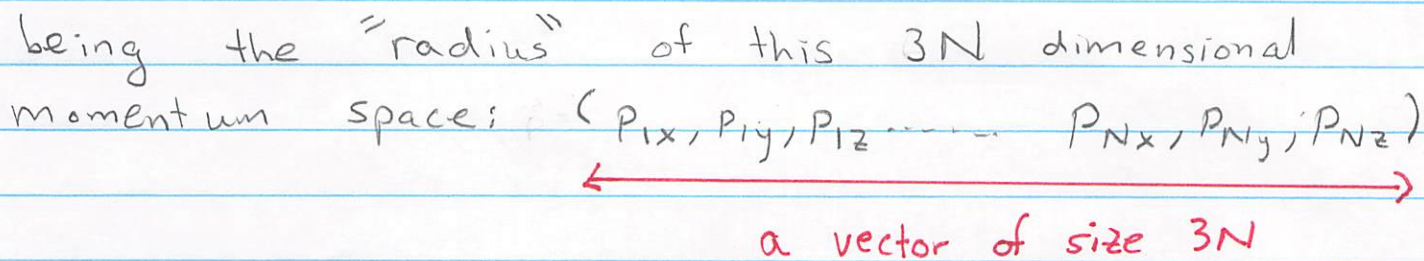 being the "radius" of this 3N dimensional
momentum space: (P1x, P1y, P1z ........ PNx, PNy, PNz)
a vector of size 3N